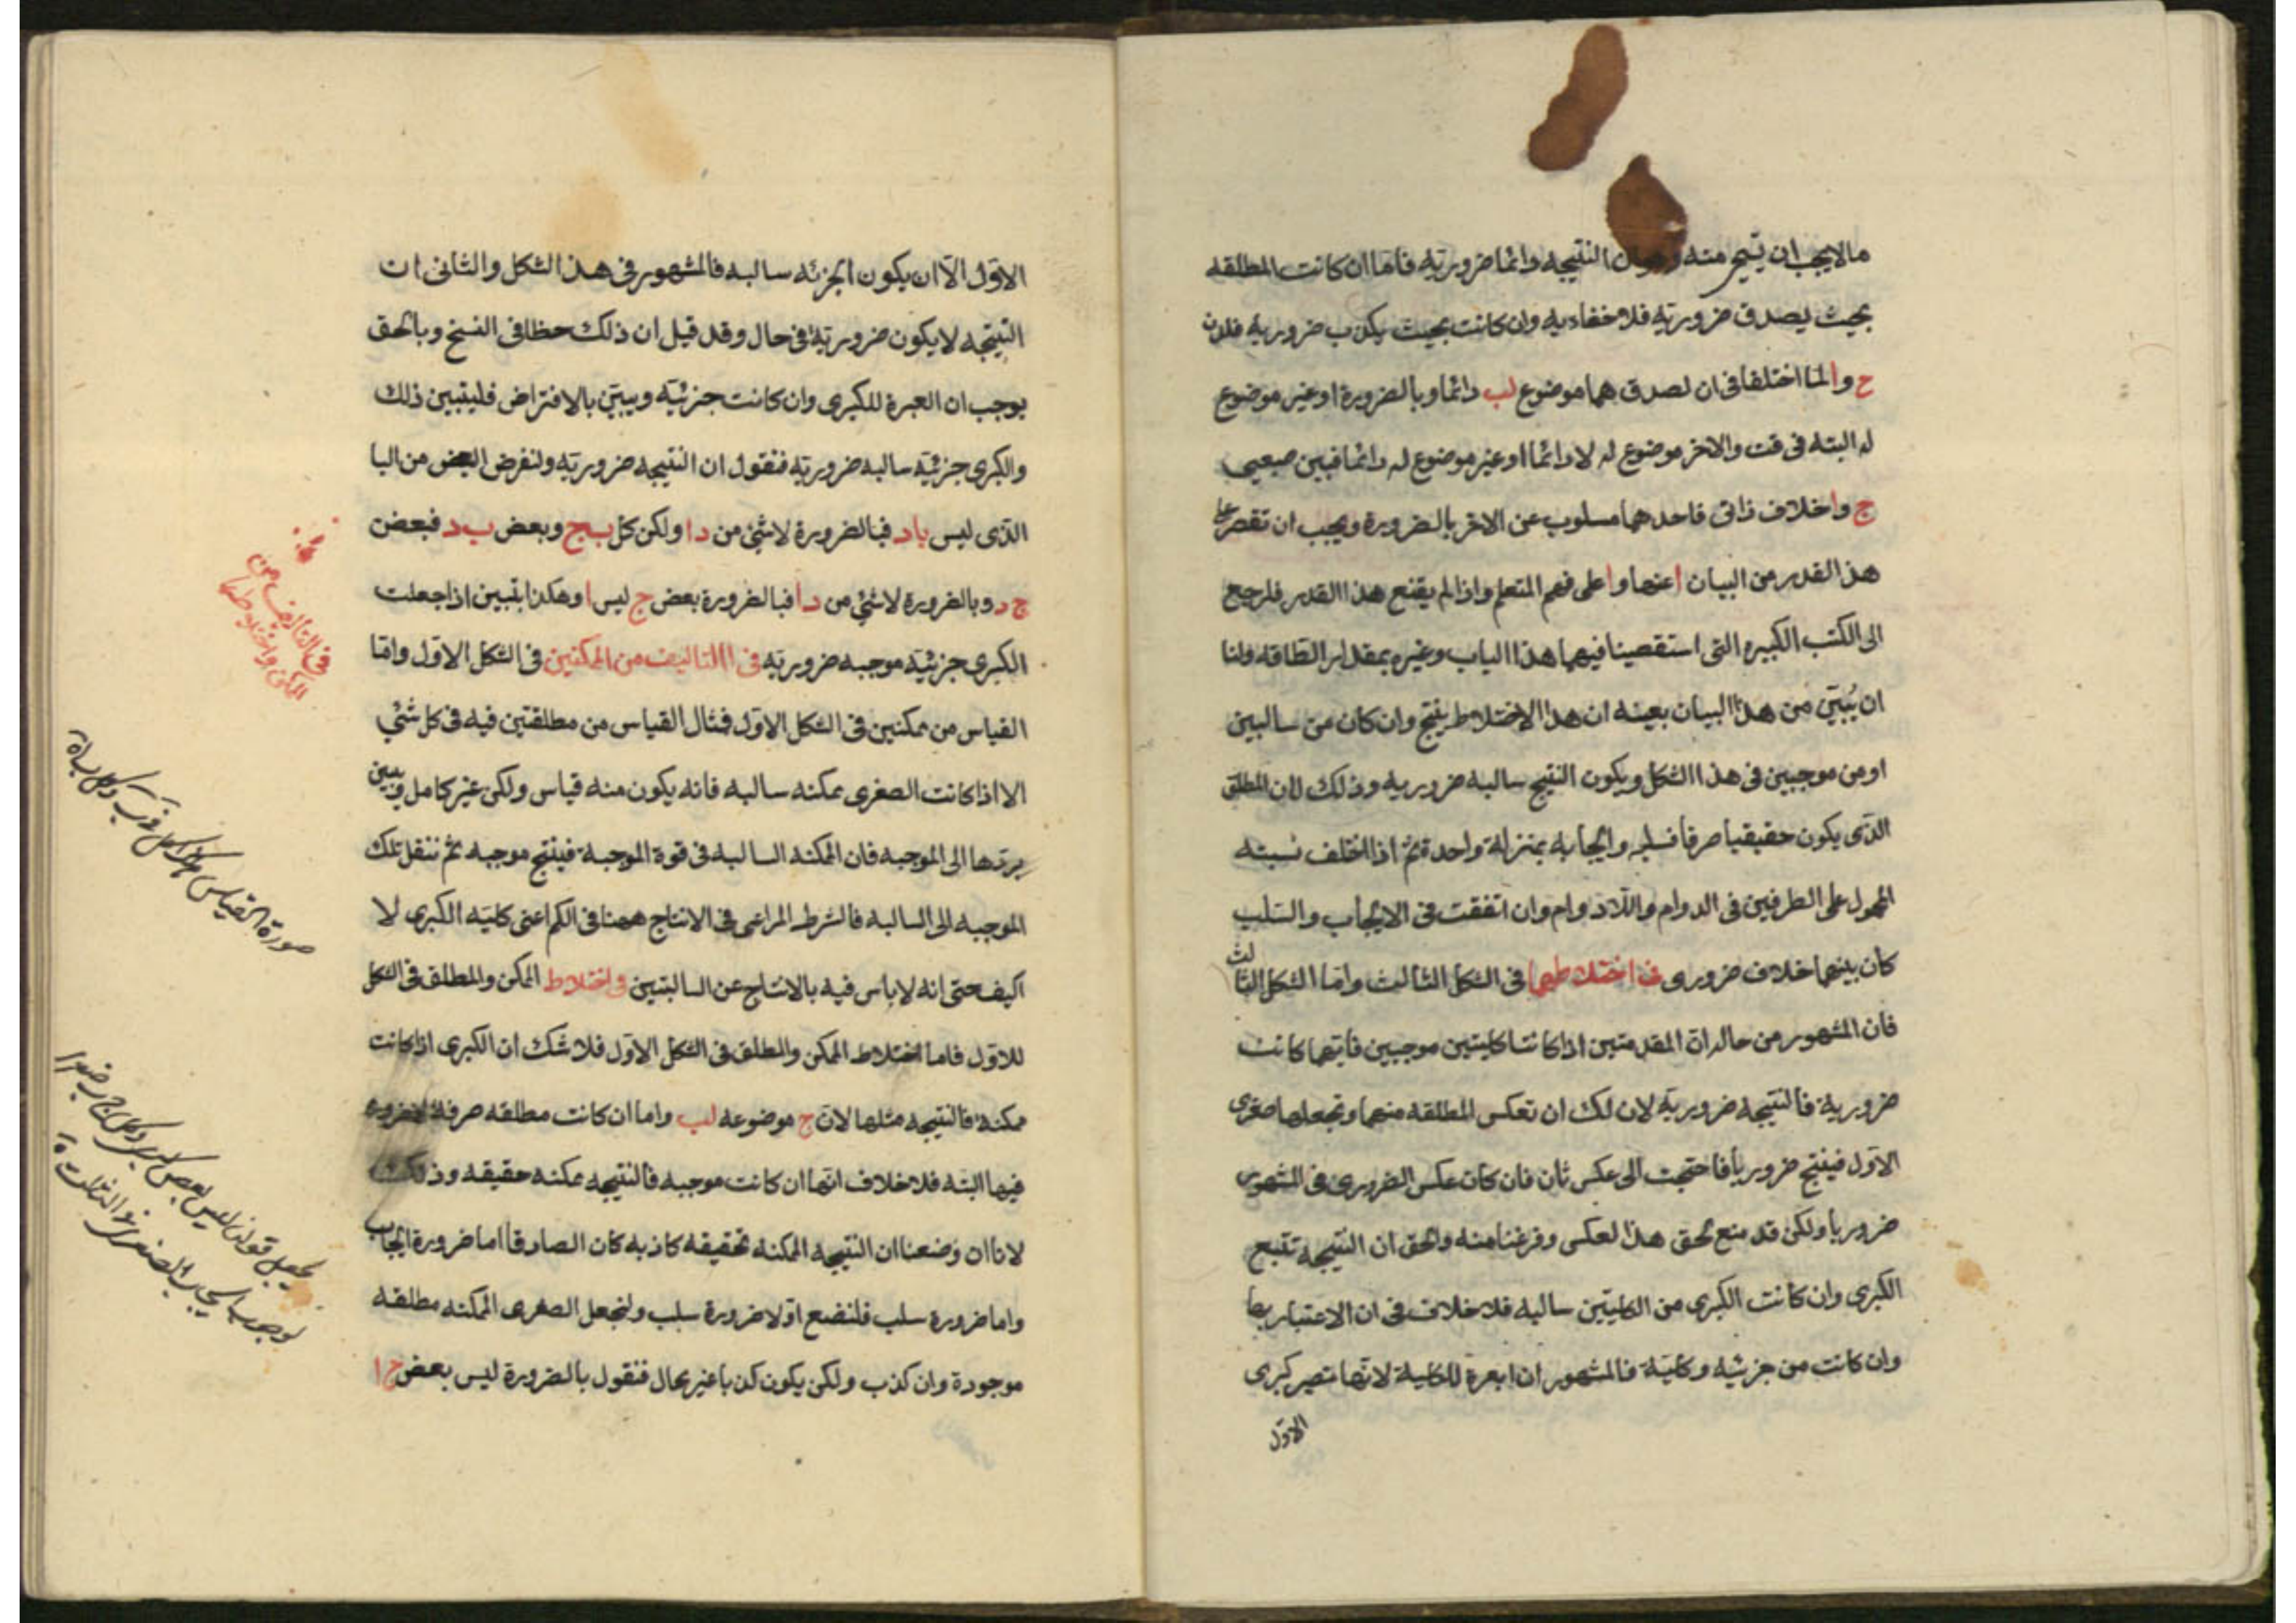 ما لا يجب ان النتيجه دائما ضروريّه فامّا ان كانت المطلقه
بحيث يصدق ضروريّه فلا خفاء به وان كانت بحيث يكذب ضروريه فلان
ح وا لما اختلفا فى ان لصدق هما موضوع لب دائما وبالضرورة او غير موضوع
له البته فى قت والاخر موضوع له لا دائما او غير موضوع له دائما فبين
ج واخلاف ذاتى فاحدهما مسلوب عن الاخر بالضرورة ويجب ان تقصر على
هذا القدر من البيان على فهم المتعلم واذا لم يقنع هذا القدر فلرجع
الى الكتب الكبيره التى استقصينا فيها هذا الباب وغيره بمقدار الطاقه ولنا
ان يُبيّن من هذا البيان بعينه ان هذا الاختلاط ينتج وان كان من سالبين
او من موجبين فى هذا الشكل ويكون النتيج سالبه ضروريه وذلك لان المطلق
الذى يكون حقيقيا صرفا فسلبه وايجابه بمنزلة واحدة ثم اذا اختلف نسبته
المحمول على الطرفين فى الدوام واللادوام وان اتفقت فى الايجاب والسلب
كان بينهما خلاف ضرورى فى اختلاطهما فى الشكل الثالث واما الشكل الثالث
فان المشهور من حاله انّ المقدمتين اذا كانتا كليتين موجبين فايّهما كانت
ضرورية فالنتيجه ضروريّه لان لك ان تعكس المطلقه منهما وتجعلها صغرى
الاوّل فينتج ضروريا فاحتجت الى عكس ثان فان كان عكس الضرورى فى المشهور
ضروريا ولكن قد منع لحق هذا لعكس وفرغنا منه والحق ان النتيجه تتبع
الكبرى وان كانت الكبرى من الكليتين سالبه فلا خلاف فى ان الاعتبار بها
وان كانت من جزئيه وكليّة فالمشهور ان ابعرة للكلية لانها تصير كبرى
الاوّل
الاوّل الّا ان يكون الجزئه سالبه فالمشهور فى هذا الشكل والثانى ان
النتيجه لا يكون ضروريّة فى حال وقد قيل ان ذلك حظا فى النسخ وبالحق
يوجب ان العبرة للكبرى وان كانت جزئيّه ويبيّن بالافتراض فليتبين ذلك
والكبرى جزئيّه سالبه ضروريّه فنقول ان النتيجه ضروريّه ولنفرض البعض من البا
الذى ليس با د فبالضرورة لا شئ من د ا ولكن كل ب ج وبعض ب د فبعض
ج د وبالضرورة لا شئ من د ا فبالضرورة بعض ج ليس ا وهكذا يتبين اذا جعلت
الكبرى جزئيّه موجبه ضروريّه فى التاليف من الممكنين فى الشكل الاوّل وامّا
القياس من ممكنين فى الشكل الاوّل فمثال القياس من مطلقتين فيه فى كل شئ
الا اذا كانت الصغرى ممكنه سالبه فانه يكون منه قياس ولكن غير كامل ويبين
بردّها الى الموجبه فان الممكنه السالبه فى قوة الموجبة فينتج موجبه ثم ننقل تلك
الموجبه الى السالبه فالشرط المراعى فى الانتاج ههنا فى الكم اعنى كليّه الكبرى لا
اكيف حتى انه لا باس فيه بالانتاج عن السالبتين فى اختلاط الممكن والمطلق فى الشكل
للاوّل فاما اختلاط الممكن والمطلق فى الشكل الاوّل فلا شك ان الكبرى اذا كانت
ممكنة فالنتيجه مثلها لانّ ج موضوعه لب واما ان كانت مطلقه صرفة لا ضرورة
فيها البته فلا خلاف انّها ان كانت موجبه فالنتيجه ممكنه حقيقه وذلك
لانا ان وضعنا ان النتيجه الممكنه تحقيقه كاذبه كان الصادق اما ضرورة ايجاب
واما ضرورة سلب فلنضع اوّلا ضرورة سلب ولنجعل الصغرى الممكنه مطلقه
موجودة وان كذب ولكن يكون كذبا غير محال فنقول بالضرورة ليس بعض ج ا
فى التاليف من
صورة القياس